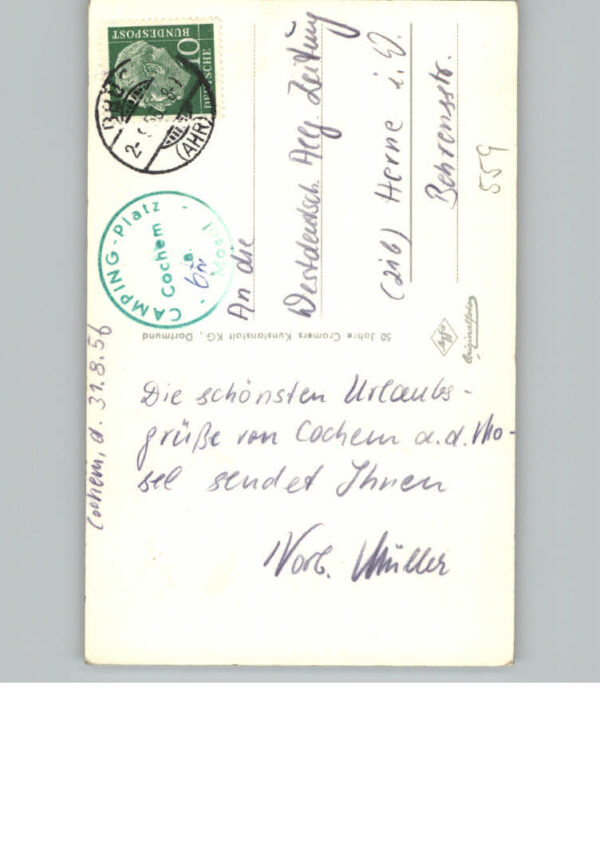 Cochem, d. 31.8.56
Die schönsten Urlaubs-
grüße von Cochem a.d. Mo-
sel sendet Ihnen
Norb. Müller
An die
Westdeutsch. Allg. Zeitung
(21b) Herne i. W.
Behrensstr.
559
DEUTSCHE
BUNDESPOST
(AHR)
CAMPING-Platz
Cochem
a.
Mosel
50 Jahre Cramers Kunstanstalt KG., Dortmund
Agfa
Originalfoto